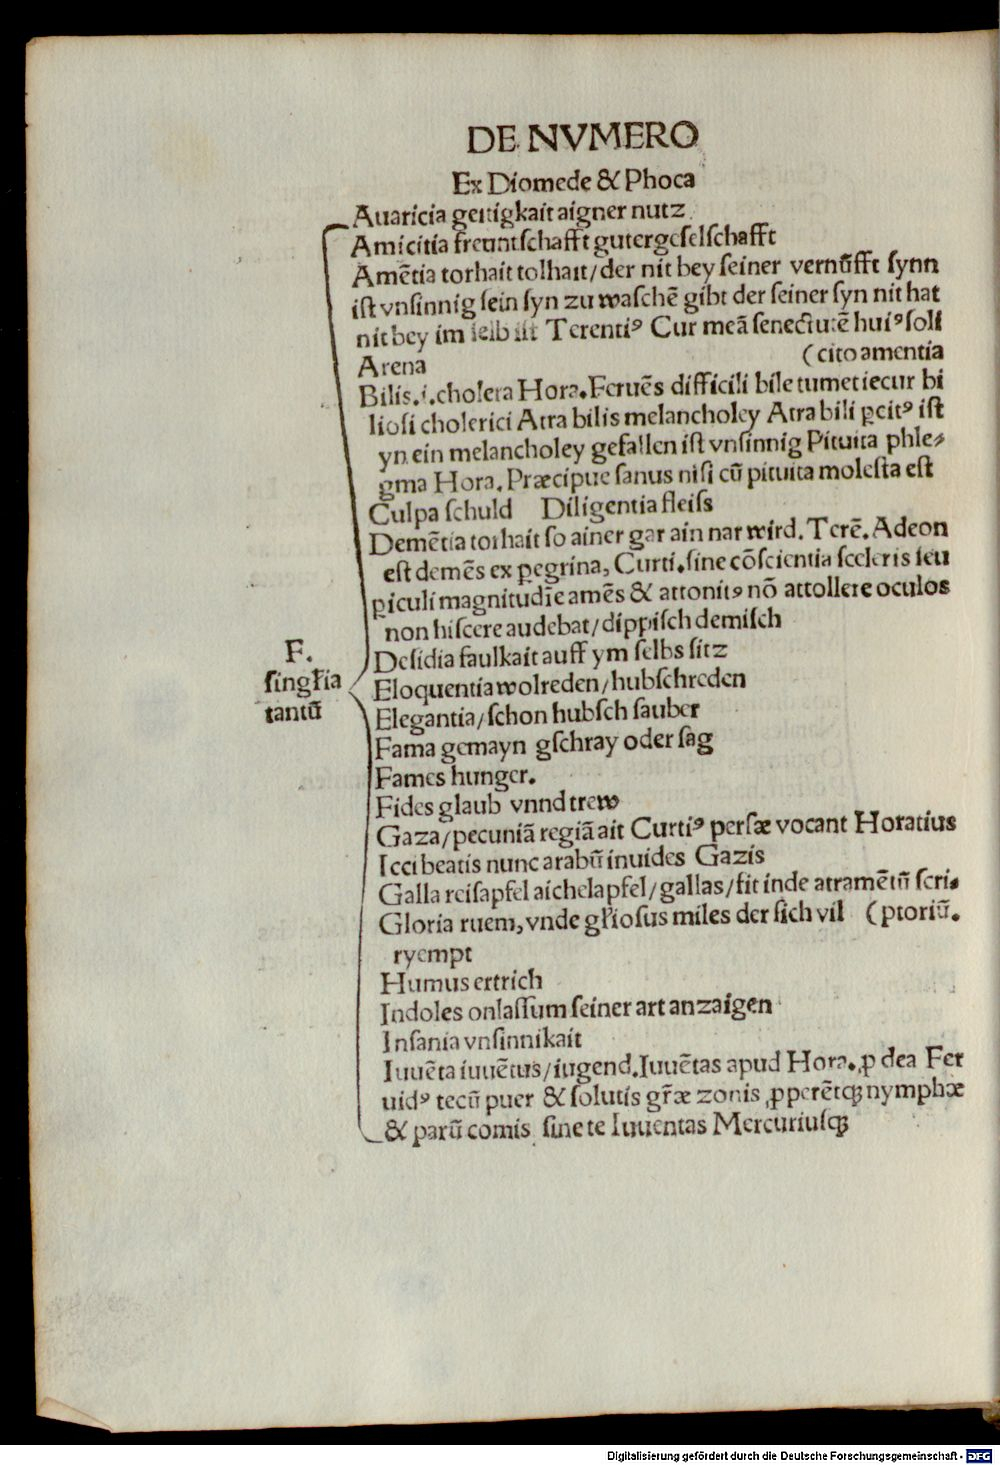 DE NVMERO
Ex Diomede & Phoca
Auaricia geitigkait aigner nutz
Amicitia freuntſchafft gutergeſelſchafft
Amētia torhait tolhait/der nit bey ſeiner vernūfft ſynn
iſt vnſinnig ſein ſyn zu waſchē gibt der ſeiner ſyn nit hat
nit bey im ſelb iſt Terentiꝰ Cur meā ſenectutē huiꝰ ſoli
Arena (cito amentia
Bilis.i.cholera Hora.Feruēs difficili bile tumet iecur bi
lioſi cholerici Atra bilis melancholey Atra bili ꝑcitꝰ iſt
yn ein melancholey gefallen iſt vnſinnig Pituita phle⸗
gma Hora. Præcipue ſanus niſi cū pituita moleſta eſt
Culpa ſchuld Diligentia fleiſs
Demētia torhait ſo ainer gar ain nar wird. Terē. Adeon
eſt demēs ex ꝑegrina, Curti.ſine cōſcientia ſceleris ſeu
ꝑiculi magnitudīe amēs & attonitꝰ nō attollere oculos
non hiſcere audebat/dippiſch demiſch
Deſidia faulkait auff ym ſelbs ſitz
F.
ſingł'ia
tantū
Eloquentia wolreden/hubſchreden
Elegantia/ſchon hubſch ſauber
Fama gemayn gſchray oder ſag
Fames hunger.
Fides glaub vnnd trew
Gaza/pecuniā regiā ait Curtiꝰ perſæ vocant Horatius
Icci beatis nunc arabū inuides Gazis
Galla reiſapfel aichelapfel/gallas/fit inde atramētū ſcri.
Gloria ruem,vnde gł'ioſus miles der ſich vil (ptoriū.
ryempt
Humus ertrich
Indoles onlaſſum ſeiner art anzaigen
Inſania vnſinnikait
Iuuēta iuuētus/iugend.Iuuētas apud Hora.,ꝓ dea Fer
uidꝰ tecū puer & ſolutis gr̃æ zonis ꝓperētq̃ nymphæ
& parū comis ſine te Iuuentas Mercuriuſq̃
Digitalisierung gefördert durch die Deutsche Forschungsgemeinschaft - DFG